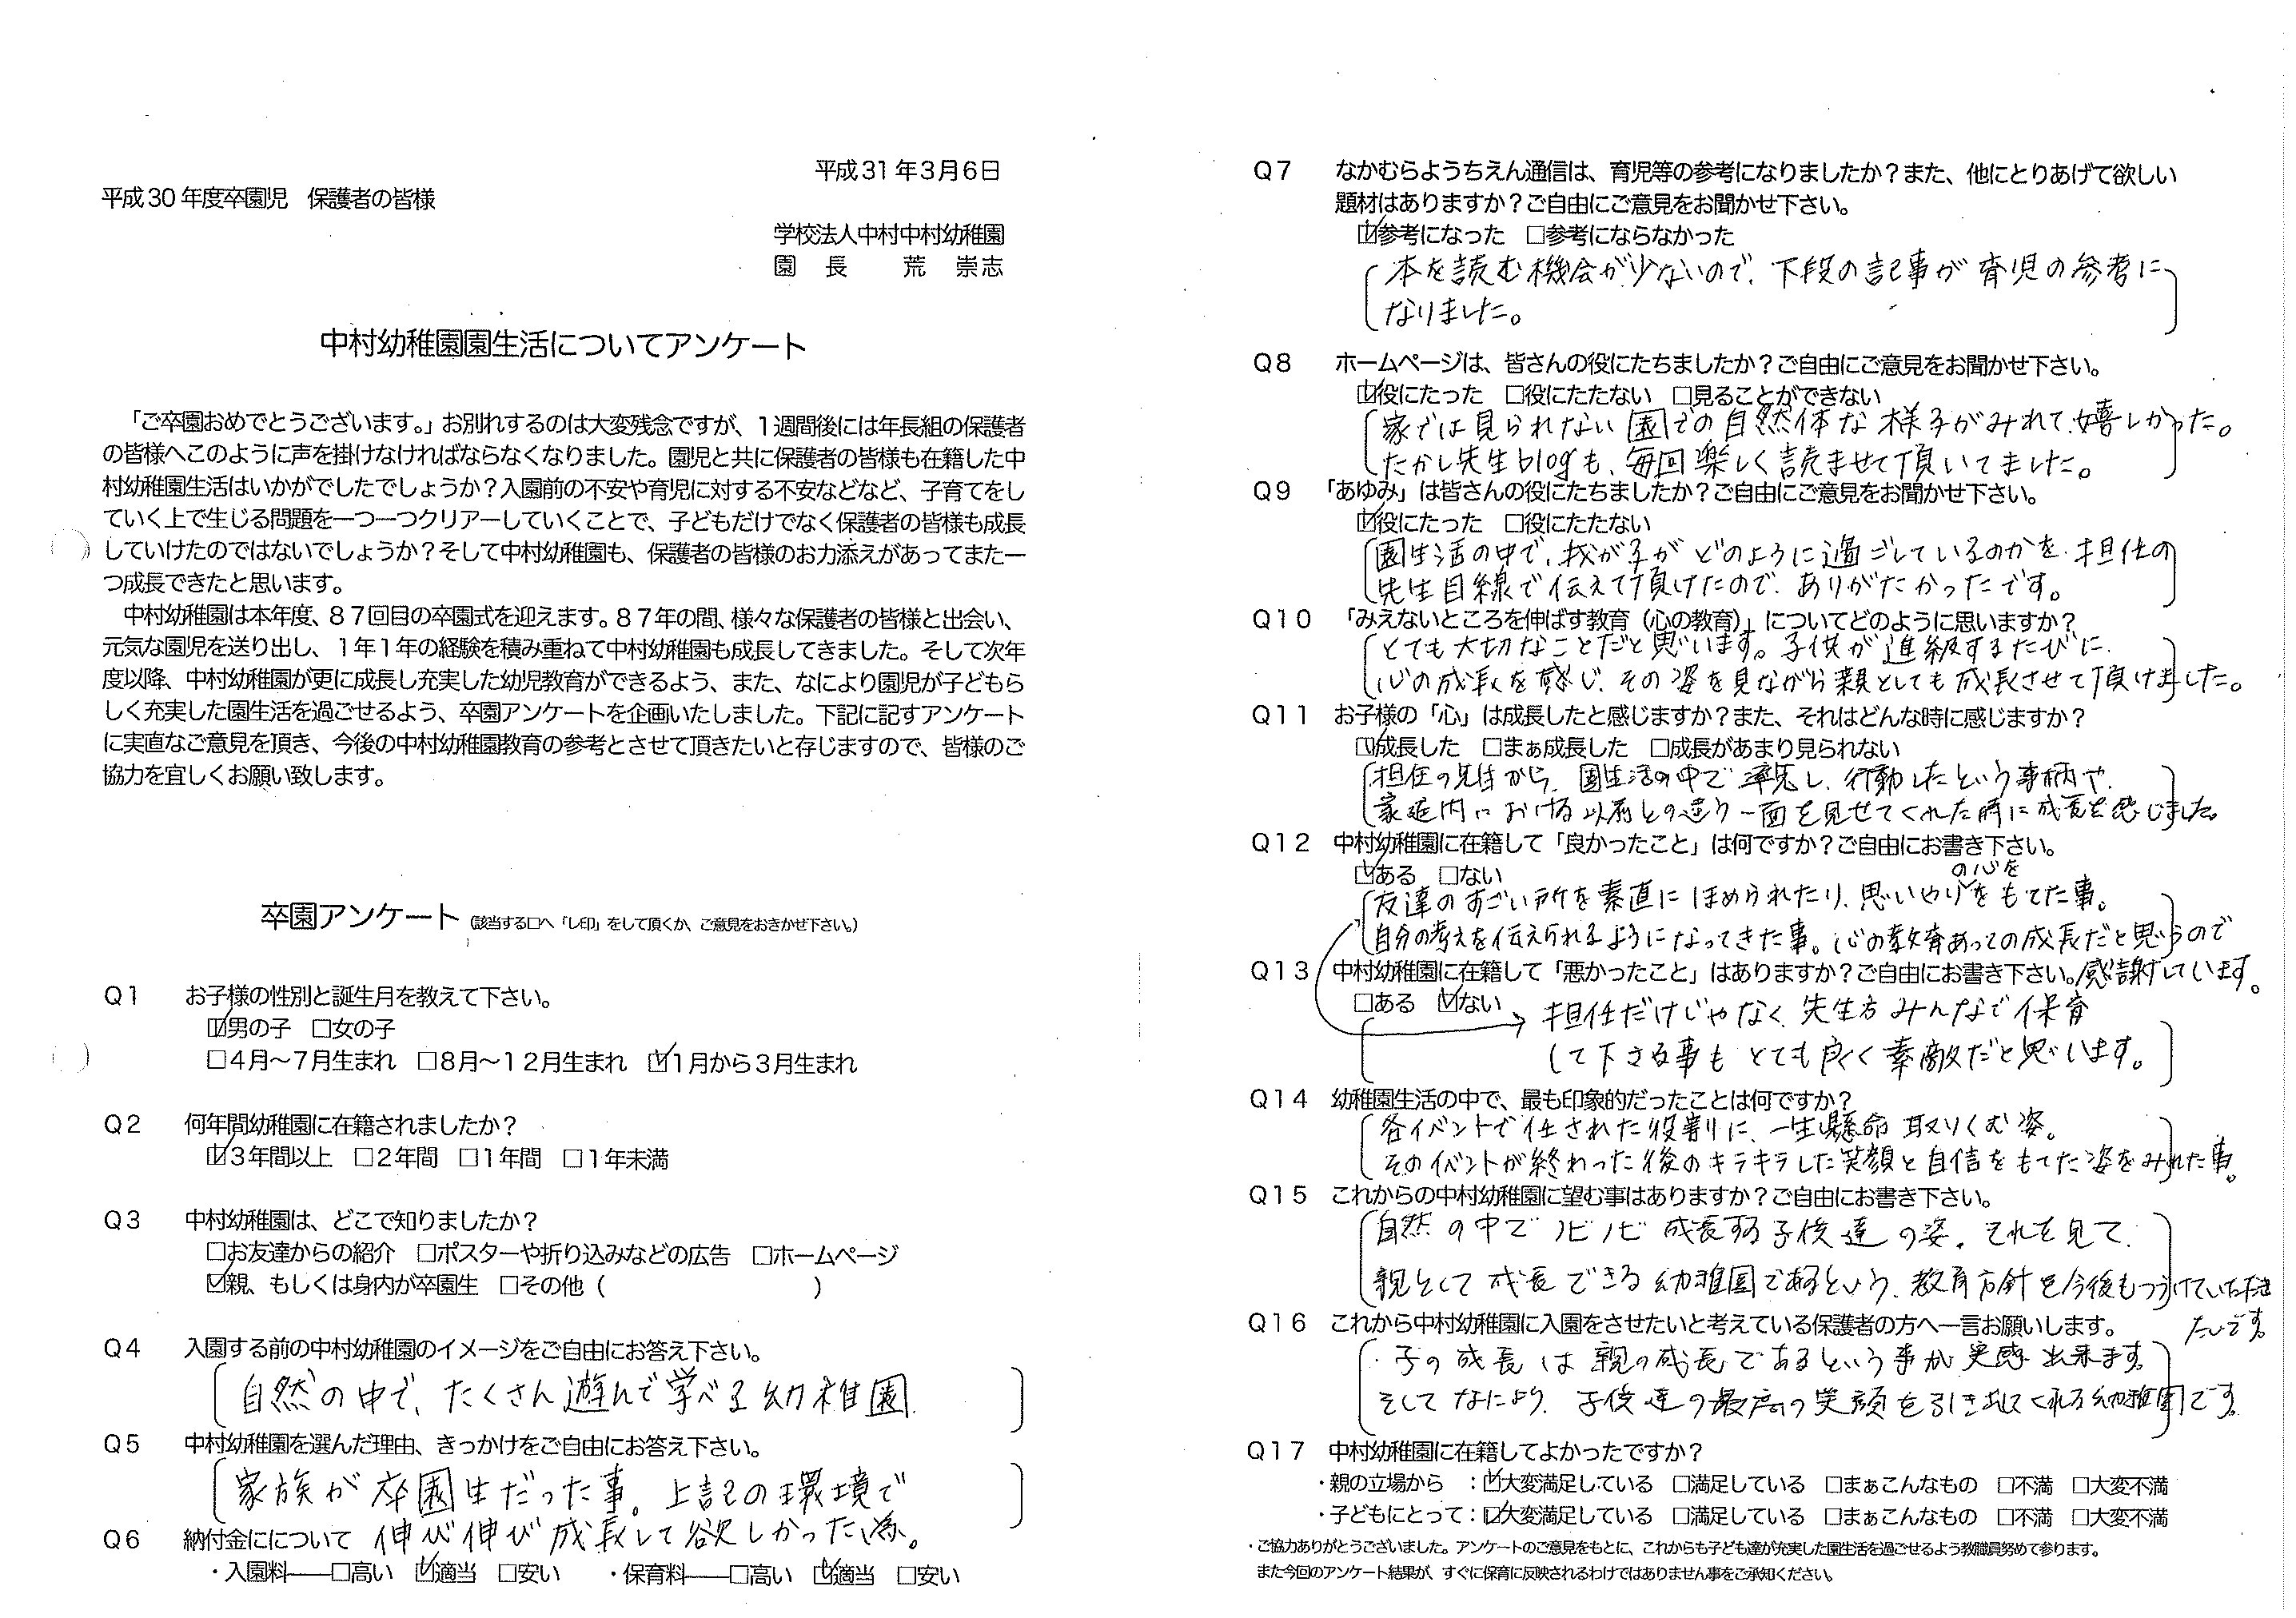 平成31年3月6日
平成30年度卒園児　保護者の皆様
学校法人中村中村幼稚園
園　長　　荒　崇志
中村幼稚園園生活についてアンケート
「ご卒園おめでとうございます。」お別れするのは大変残念ですが、1週間後には年長組の保護者
の皆様へこのように声を掛けなければならなくなりました。園児と共に保護者の皆様も在籍した中
村幼稚園生活はいかがでしたでしょうか？入園前の不安や育児に対する不安などなど、子育てをし
ていく上で生じる問題を一つ一つクリアーしていくことで、子どもだけでなく保護者の皆様も成長
していけたのではないでしょうか？そして中村幼稚園も、保護者の皆様のお力添えがあってまた一
つ成長できたと思います。
中村幼稚園は本年度、87回目の卒園式を迎えます。87年の間、様々な保護者の皆様と出会い、
元気な園児を送り出し、1年1年の経験を積み重ねて中村幼稚園も成長してきました。そして次年
度以降、中村幼稚園が更に成長し充実した幼児教育ができるよう、また、なにより園児が子どもら
しく充実した園生活を過ごせるよう、卒園アンケートを企画いたしました。下記に記すアンケート
に実直なご意見を頂き、今後の中村幼稚園教育の参考とさせて頂きたいと存じますので、皆様のご
協力を宜しくお願い致します。
卒園アンケート（該当する□へ「レ印」をして頂くか、ご意見をおきかせ下さい。）
Q1　お子様の性別と誕生月を教えて下さい。
☑男の子　□女の子
□4月～7月生まれ　□8月～12月生まれ　☑1月から3月生まれ
Q2　何年間幼稚園に在籍されましたか？
☑3年間以上　□2年間　□1年間　□1年未満
Q3　中村幼稚園は、どこで知りましたか？
□お友達からの紹介　□ポスターや折り込みなどの広告　□ホームページ
☑親、もしくは身内が卒園生　□その他（　　　　　　）
Q4　入園する前の中村幼稚園のイメージをご自由にお答え下さい。
自然の中で、たくさん遊んで学べる幼稚園
Q5　中村幼稚園を選んだ理由、きっかけをご自由にお答え下さい。
家族が卒園生だった事。上記の環境で
伸び伸び成長して欲しかった為。
Q6　納付金にについて
・入園料――□高い　☑適当　□安い　・保育料――□高い　☑適当　□安い
Q7　なかむらようちえん通信は、育児等の参考になりましたか？また、他にとりあげて欲しい
題材はありますか？ご自由にご意見をお聞かせ下さい。
☑参考になった　□参考にならなかった
本を読む機会が少ないので、下段の記事が育児の参考に
なりました。
Q8　ホームページは、皆さんの役にたちましたか？ご自由にご意見をお聞かせ下さい。
☑役にたった　□役にたたない　□見ることができない
家では見られない園での自然体な様子がみれて、嬉しかった。
たかし先生blogも、毎回楽しく読ませて頂いてました。
Q9　「あゆみ」は皆さんの役にたちましたか？ご自由にご意見をお聞かせ下さい。
☑役にたった　□役にたたない
園生活の中で、我が子がどのように過ごしているのかを、担任の
先生目線で伝えて頂けたので、ありがたかったです。
Q10　「みえないところを伸ばす教育（心の教育）」についてどのように思いますか？
とても大切なことだと思います。子供が進級するたびに、
心の成長を感じ、その姿を見ながら親としても成長させて頂けました。
Q11　お子様の「心」は成長したと感じますか？また、それはどんな時に感じますか？
☑成長した　□まぁ成長した　□成長があまり見られない
担任の先生から、園生活の中で率先し、行動したという事柄や、
家庭内における以前との違う一面を見せてくれた時に成長を感じました。
Q12　中村幼稚園に在籍して「良かったこと」は何ですか？ご自由にお書き下さい。
☑ある　□ない
友達のすごい所を素直にほめられたり、思いやりの心をもてた事。
自分の考えを伝えられるようになってきた事。心の教育あっての成長だと思うので
感謝しています。
Q13　中村幼稚園に在籍して「悪かったこと」はありますか？ご自由にお書き下さい。
□ある　☑ない
担任だけじゃなく、先生方みんなで保育
して下さる事もとても良く素敵だと思います。
Q14　幼稚園生活の中で、最も印象的だったことは何ですか？
各イベントで任された役割りに、一生懸命取りくむ姿。
そのイベントが終わった後のキラキラした笑顔と自信をもてた姿をみれた事。
Q15　これからの中村幼稚園に望む事はありますか？ご自由にお書き下さい。
自然の中でノビノビ成長する子供達の姿。それを見て、
親として成長できる幼稚園であるという、教育方針を今後もつづけていただき
たいです。
Q16　これから中村幼稚園に入園をさせたいと考えている保護者の方へ一言お願いします。
・子の成長は親の成長であるという事が実感出来ます。
そしてなにより、子供達の最高の笑顔を引き出してくれる幼稚園です。
Q17　中村幼稚園に在籍してよかったですか？
・親の立場から　：☑大変満足している　□満足している　□まぁこんなもの　□不満　□大変不満
・子どもにとって：☑大変満足している　□満足している　□まぁこんなもの　□不満　□大変不満
・ご協力ありがとうございました。アンケートのご意見をもとに、これからも子ども達が充実した園生活を過ごせるよう教職員努めて参ります。
また今回のアンケート結果が、すぐに保育に反映されるわけではありません事をご承知ください。